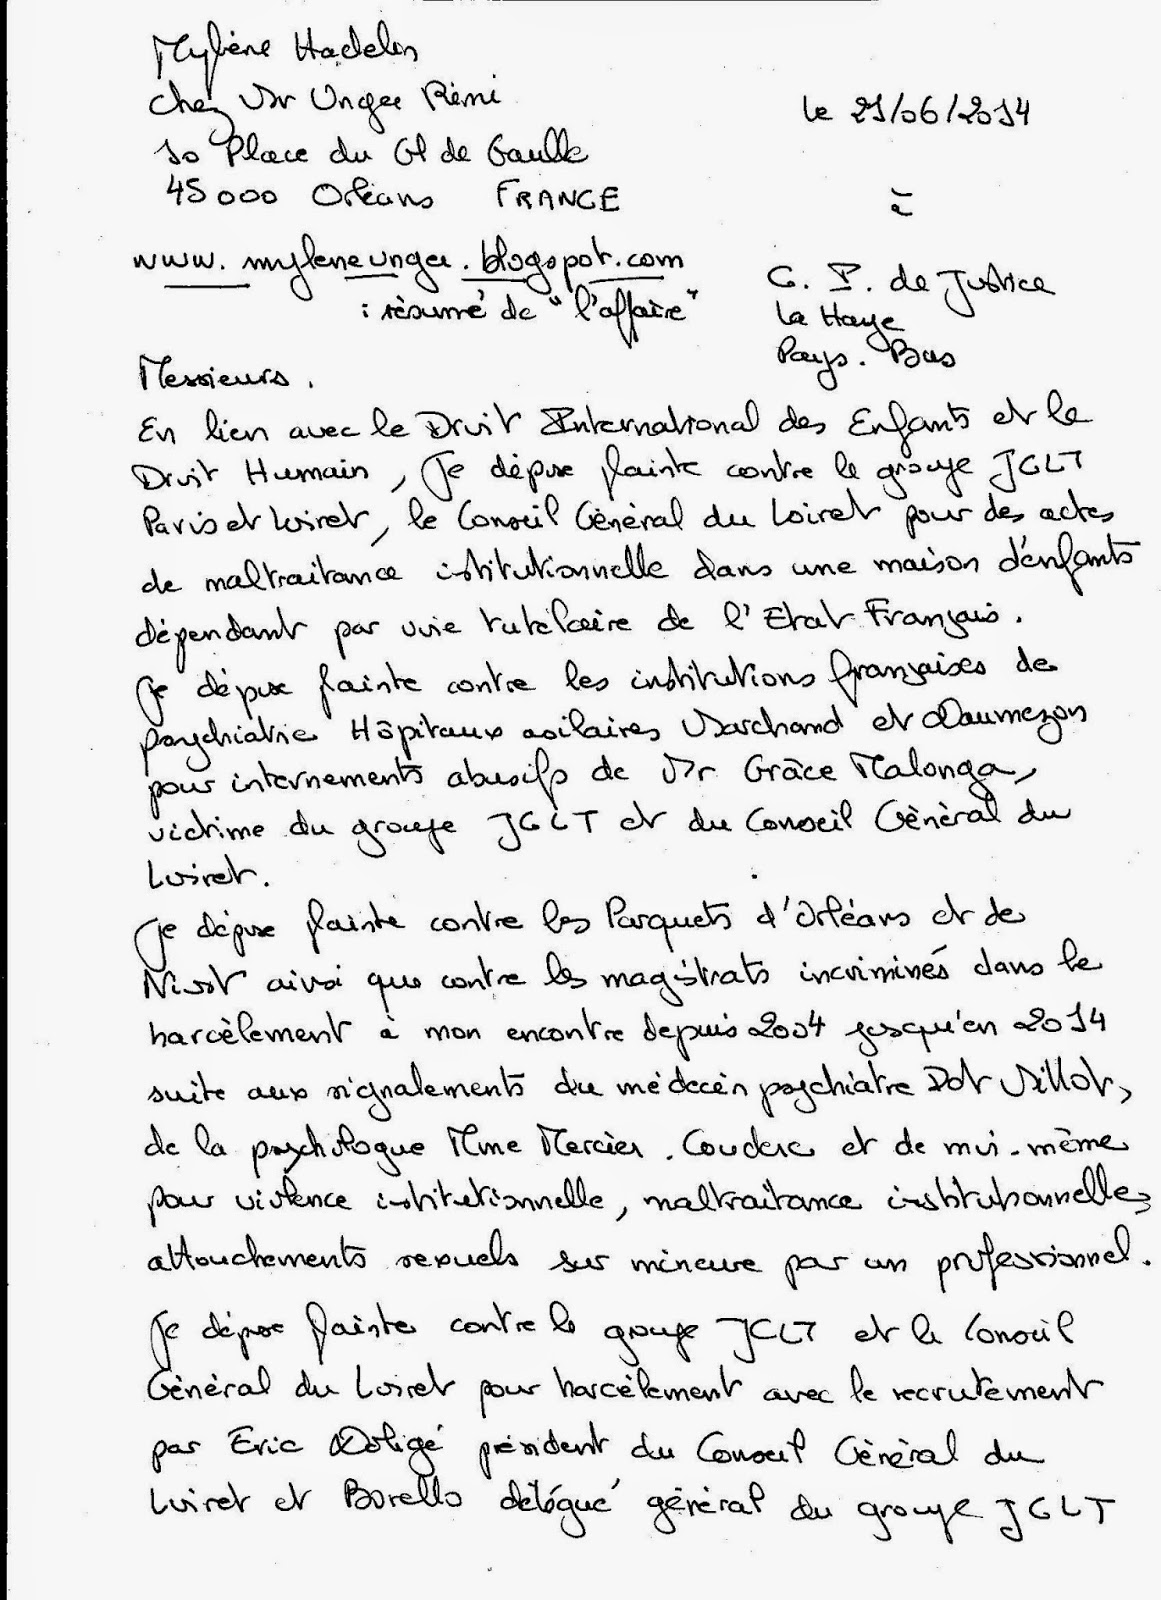 Mylène Hadelin
chez Mr Unger Rémi
10 Place du Gl de Gaulle
45000 Orléans FRANCE
le 21/06/2014
à
www.myleneunger.blogspot.com
: résumé de "l'affaire"
C. P. de Justice
La Haye
Pays-Bas
Messieurs.
En lien avec le Droit International des Enfants et le
Droit Humain, Je dépose plainte contre le groupe JCLT
Paris et Loiret, le Conseil Général du Loiret pour des actes
de maltraitance institutionnelle dans une maison d'enfants
dépendant par voie tutélaire de l'Etat Français.
Je dépose plainte contre les institutions françaises de
psychiatrie Hôpitaux asilaires Marchand et Daumezon
pour internements abusifs de Mr Grâce Malonga,
victime du groupe JGLT et du Conseil Général du
Loiret.
Je dépose plainte contre les Parquets d'Orléans et de
Niort ainsi que contre les magistrats incriminés dans le
harcèlement à mon encontre depuis 2004 jusqu'en 2014
suite aux signalements du médecin psychiatre Dot Millot,
de la psychologue Mme Mercier-Couderc et de moi-même
pour violence institutionnelle, maltraitance institutionnelle,
attouchements sexuels sur mineure par un professionnel.
Je dépose plainte contre le groupe JCLT et le Conseil
Général du Loiret pour harcèlement avec le recrutement
par Eric Doligé président du Conseil Général du
Loiret et Borello délégué général du groupe JGLT